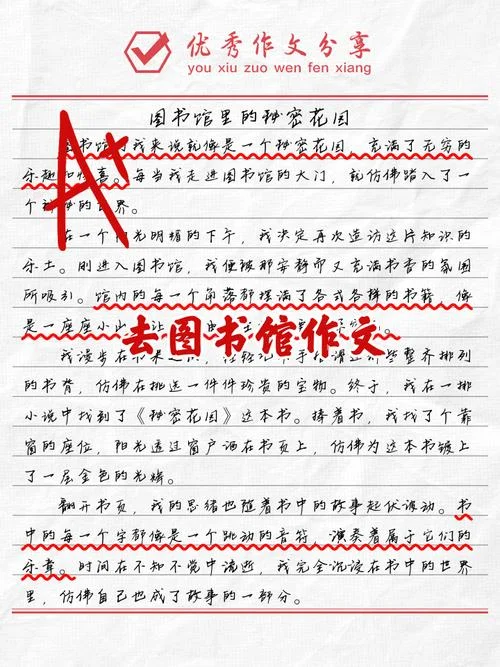 优秀作文分享
you xiu zuo wen fen xiang
图书馆里的秘密花园
图书馆对我来说就像是一个秘密花园，充满了无穷的
乐趣和惊喜。每当我走进图书馆的大门，就仿佛踏入了一
个神秘的世界。
在一个阳光明媚的下午，我决定再次造访这片知识的
乐土。刚进入图书馆，我便被那安静而又充满书香的氛围
所吸引。馆内的每一个角落都摆满了各式各样的书籍，像
是一座座小山，让
去图书馆作文
我漫步在书架之间，
整齐排列
的书脊，仿佛在挑选一件件珍贵的宝物。终于，我在一排
小说中找到了《秘密花园》这本书。捧着书，我找了个靠
窗的座位，阳光透过窗户洒在书页上，仿佛为这本书镀上
了一层金色的光辉。
翻开书页，我的思绪也随着书中的故事起伏波动。书
中的每一个字都像是一个跳动的音符，演奏着属于它们的
乐章。时间在不知不觉中流逝，我完全沉浸在书中的世界
里，仿佛自己也成了故事的一部分。
A+